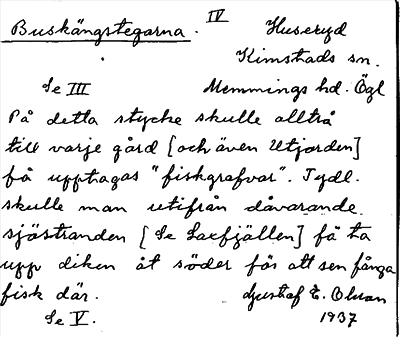 Buskängstegarna. IV Huseryd
Kimstads sn.
Se III Memmings hd. Ögl
På detta stycke skulle alltså
till varje gård [och även Utjorden]
få upptagas "fiskgrafvar". Tydl.
skulle man utifrån dåvarande
sjöstranden [Se Laxfjällen] få ta
upp diken åt söder för att sen fånga
fisk där. Gustaf E. Olsson
Se V. 1937